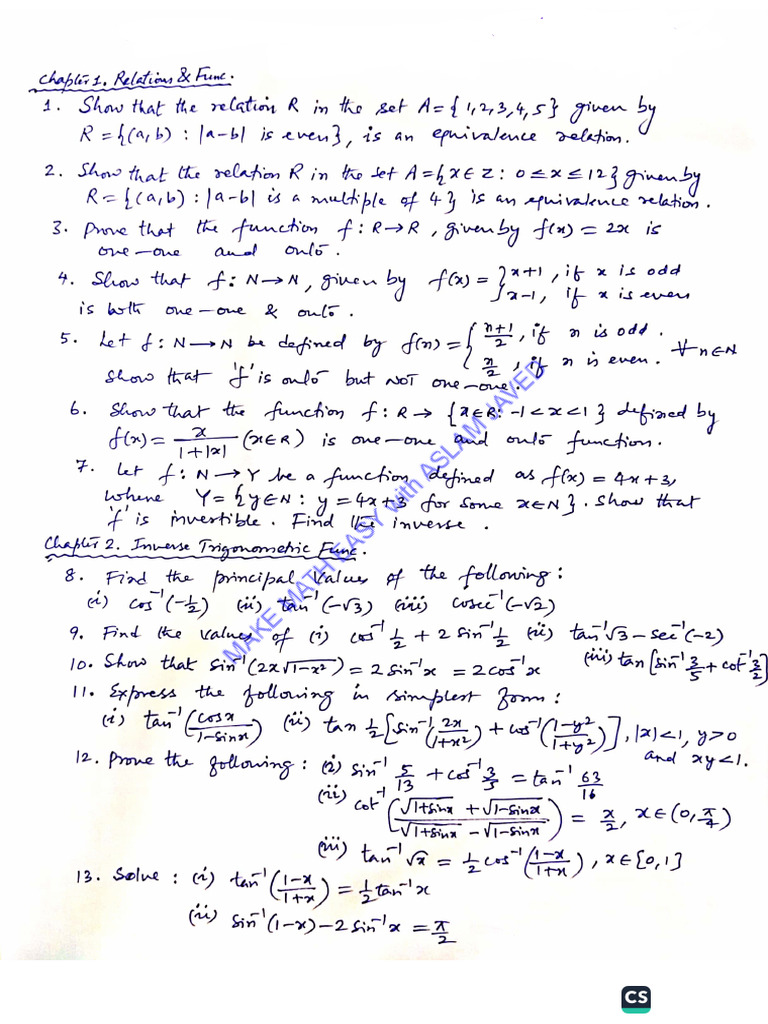 Chapter 1. Relations & Func.
1. Show that the relation R in the set A={1,2,3,4,5} given by
R={(a,b) : |a-b| is even}, is an equivalence relation.
2. Show that the relation R in the set A={x∈Z: 0≤x≤12} given by
R={(a,b) : |a-b| is a multiple of 4} is an equivalence relation.
3. Prove that the function f: R→R, given by f(x)=2x is
one-one and onto.
4. Show that f: N→N, given by f(x) = { x+1, if x is odd
x-1, if x is even
is both one-one & onto.
5. Let f: N→N be defined by f(n) = { n+1/2, if n is odd.
n/2, if n is even. ∀ n∈N
Show that 'f' is onto but NOT one-one.
6. Show that the function f: R→ {x∈R: -1<x<1} defined by
f(x) = x/1+|x| (x∈R) is one-one and onto function.
7. Let f: N→Y be a function defined as f(x) = 4x+3,
where Y={y∈N: y=4x+3 for some x∈N}. Show that
'f' is invertible. Find the inverse.
Chapter 2. Inverse Trigonometric Func.
8. Find the principal values of the following:
(i) cos⁻¹(-1/2) (ii) tan⁻¹(-√3) (iii) cosec⁻¹(-√2)
9. Find the values of (i) cos⁻¹ 1/2 + 2 sin⁻¹ 1/2 (ii) tan⁻¹√3 - sec⁻¹(-2)
(iii) tan[sin⁻¹ 3/5 + cot⁻¹ 3/2]
10. Show that sin⁻¹(2x√1-x²) = 2 sin⁻¹x = 2cos⁻¹x
11. Express the following in simplest form:
(i) tan⁻¹(cosx/1-sinx) (ii) tan 1/2 [sin⁻¹(2x/1+x²) + cos⁻¹(1-y²/1+y²)], |x|<1, y>0
and xy<1.
12. Prove the following: (i) sin⁻¹ 5/13 + cos⁻¹ 3/5 = tan⁻¹ 63/16
(ii) cot⁻¹(√1+sinx + √1-sinx / √1+sinx - √1-sinx) = x/2, x∈(0, π/4)
(iii) tan⁻¹√x = 1/2 cos⁻¹(1-x/1+x), x∈[0,1]
13. Solve: (i) tan⁻¹(1-x/1+x) = 1/2 tan⁻¹x
(ii) sin⁻¹(1-x) - 2 sin⁻¹x = π/2
MAKE MATH EASY with ASLAM JAVED
CS